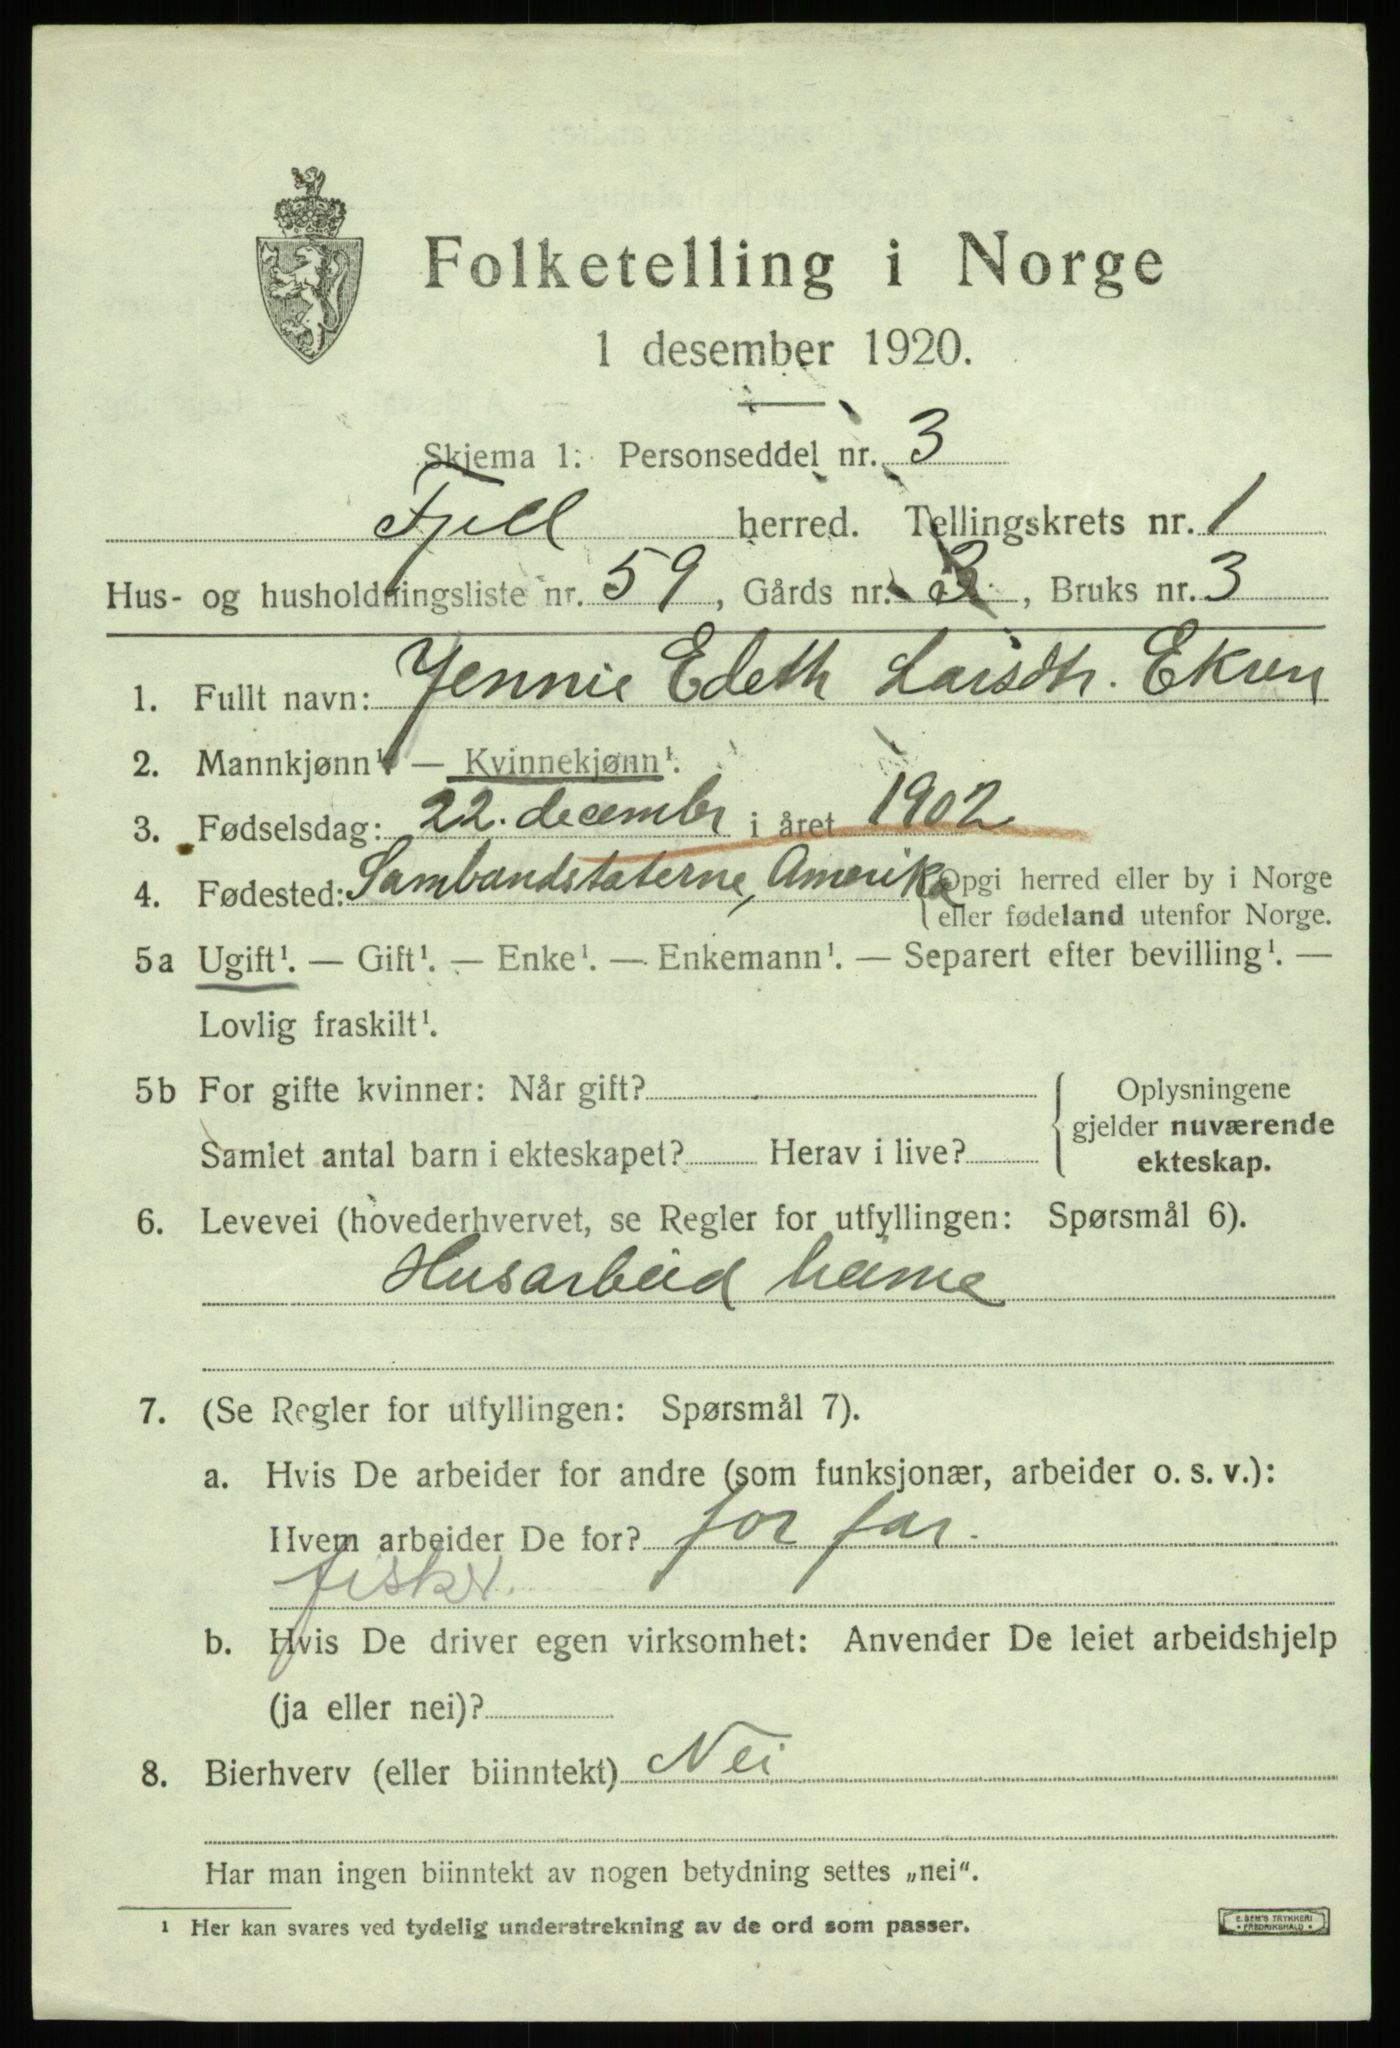 Folketelling i Norge
1 desember 1920.
Skjema 1: Personseddel nr. 3
Fjell herred. Tellingskrets nr. 1
Hus- og husholdningsliste nr. 59, Gårds nr. 3, Bruks nr. 3
1. Fullt navn: Jennie Edeth Larsdtr. Ekren
2. Mannkjønn¹. — Kvinnekjønn¹.
3. Fødselsdag: 22. decembr i året 1902
4. Fødested: Sambandstaterne, Amerika {Opgi herred eller by i Norge
eller fødeland utenfor Norge.
5a Ugift¹. — Gift¹. — Enke¹. — Enkemann¹. — Separert efter bevilling¹. —
Lovlig fraskilt¹.
5b For gifte kvinner: Når gift?
Samlet antal barn i ekteskapet? Herav i live?
{ Oplysningene
gjelder nuværende
ekteskap.
6. Levevei (hovederhvervet, se Regler for utfyllingen: Spørsmål 6).
Husarbeid heime
7. (Se Regler for utfyllingen: Spørsmål 7).
a. Hvis De arbeider for andre (som funksjonær, arbeider o. s. v.):
Hvem arbeider De for? for far.
fisker.
b. Hvis De driver egen virksomhet: Anvender De leiet arbeidshjelp
(ja eller nei)?
8. Bierhverv (eller biinntekt) Nei
Har man ingen biinntekt av nogen betydning settes „nei“.
¹ Her kan svares ved tydelig understrekning av de ord som passer.
E. SEM'S TRYKKERI
FREDRIKSHALD